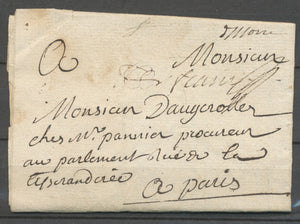 A Monsieur
Monsieur Daugerolles
ches Mr. pannier procureur
au parlement Rüe de la
tisseranderie
a paris